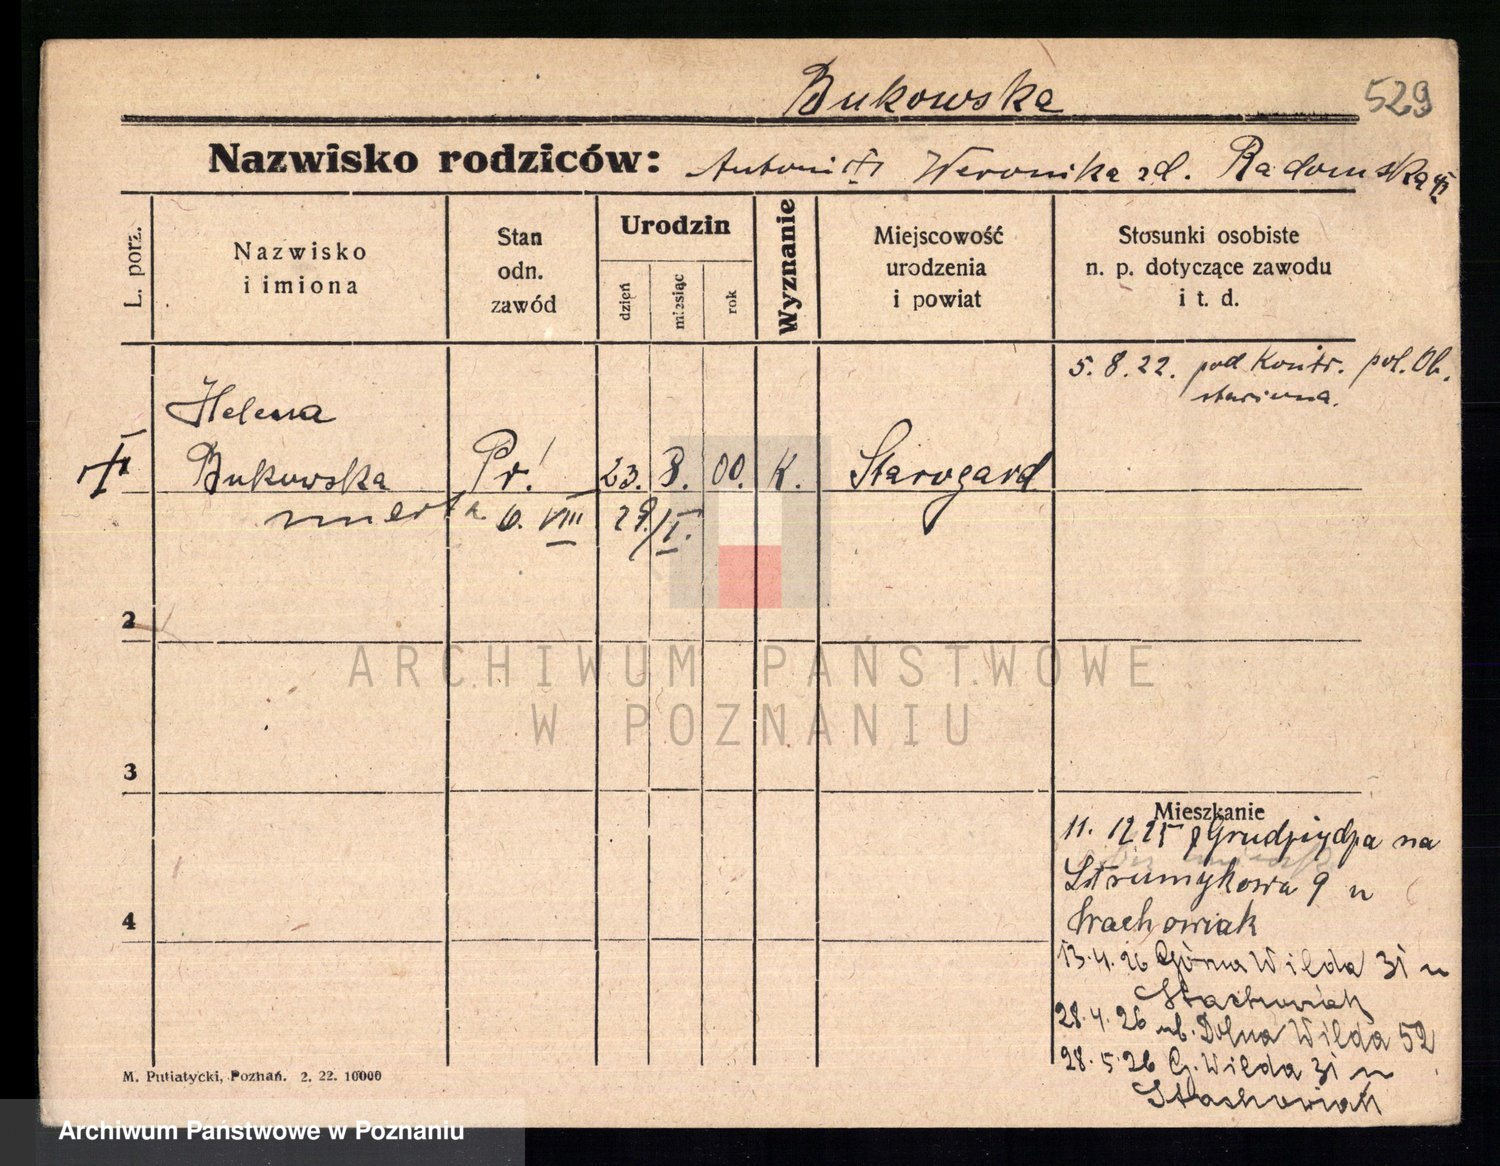 Bukowska
529
Nazwisko rodziców: Antoni Weronika zd. Radomska
L. porz.
Nazwisko i imiona
Stan odn. zawód
Urodzin
dzień
miesiąc
rok
Wyznanie
Miejscowość urodzenia i powiat
Stosunki osobiste n. p. dotyczące zawodu i t. d.
5. 8. 22. pod Kontr. pol. Ob.
Helena
Bukowska Pr! 23. 8. 00. K. Starogard
umerła 6. VIII 29/I.
2
3
Mieszkanie
11. 12 25 z Grudziądza na
Strumykowa 9 u
4
Stachowiak
13.4.26 Górna Wilda 31 u
Stachowiak
28.4.26 Dolna Wilda 52
28.5.26 G. Wilda 31 u
Stachowiak
M. Putiatycki, Poznań. 2. 22. 10000
ARCHIWUM PAŃSTWOWE
W POZNANIU
Archiwum Państwowe w Poznaniu